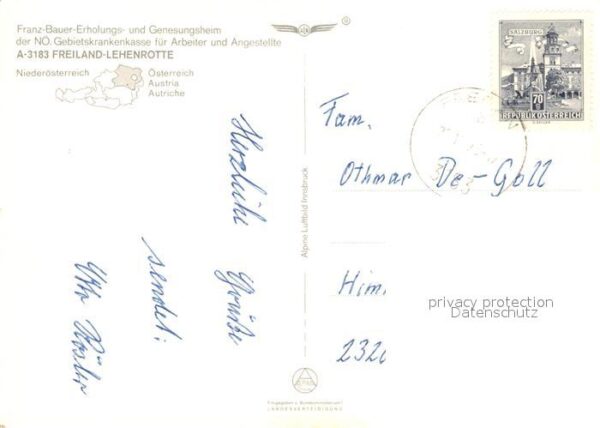 Franz-Bauer-Erholungs- und Genesungsheim
der NÖ. Gebietskrankenkasse für Arbeiter und Angestellte
A-3183 FREILAND-LEHENROTTE
Niederösterreich
Österreich
Austria
Autriche
SALZBURG
70
REPUBLIK ÖSTERREICH
Herzliche Grüße
sendet:
Alpine Luftbild Innsbruck
Fam.
Othmar De-Goll
Him.
232
privacy protection
Datenschutz
LANDESVERTEIDIGUNG